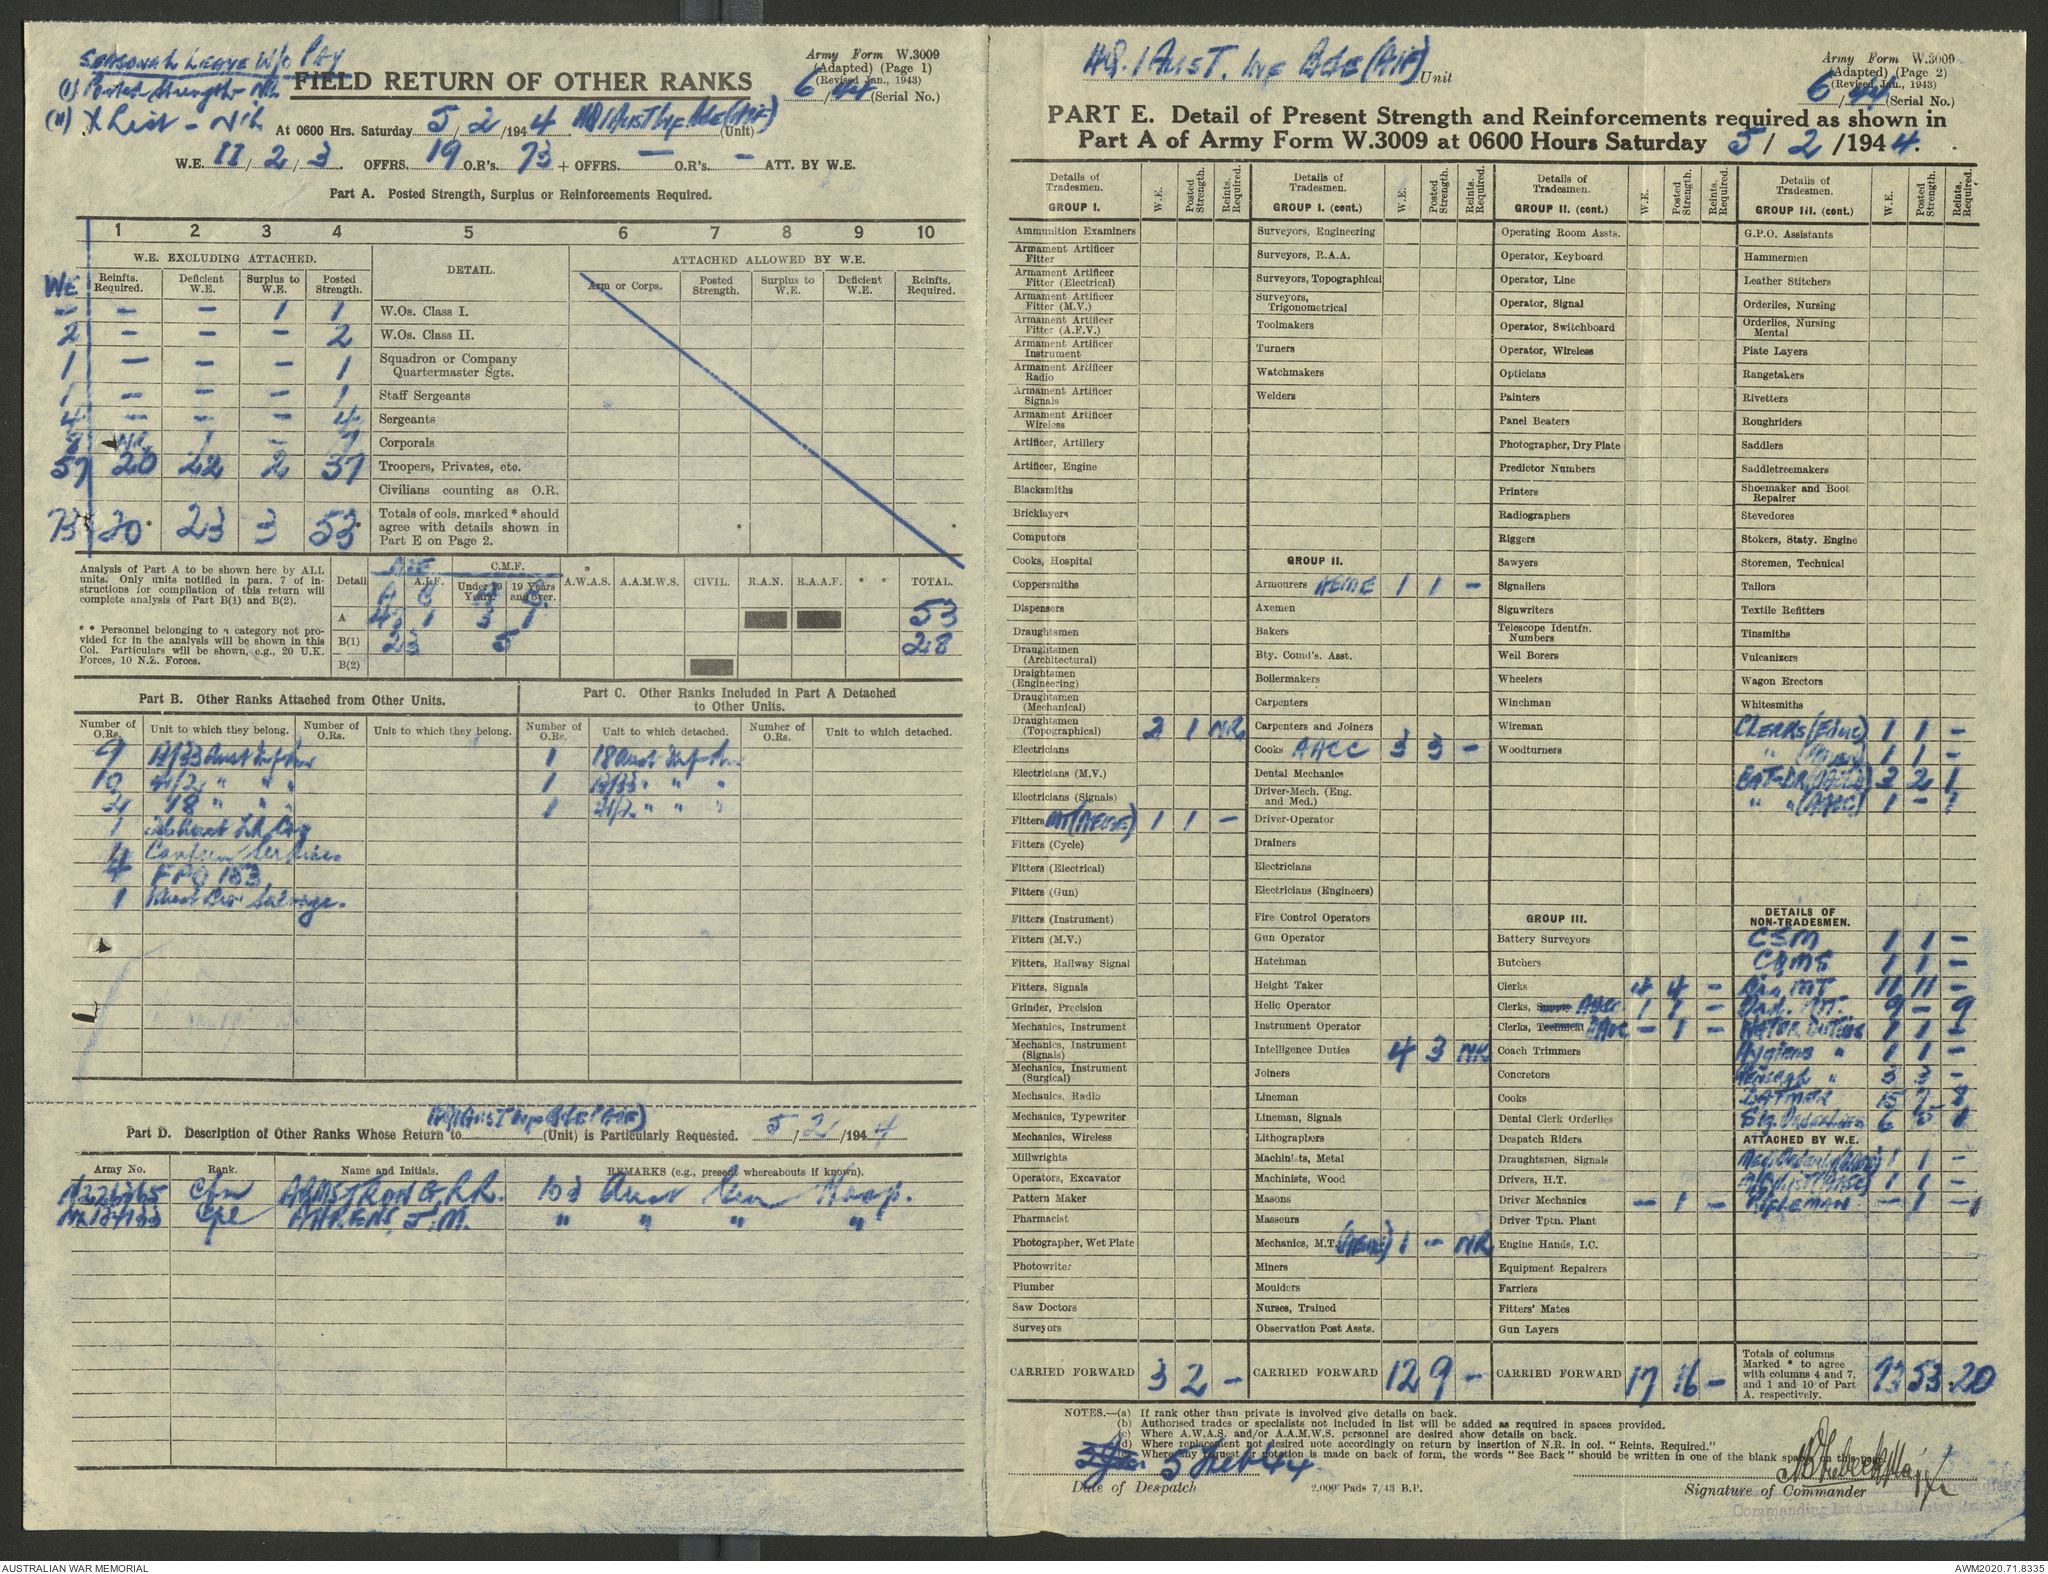 SEASONAL LEAVE W/O PAY
(I) Posted Strength - Nil
(II) X List - Nil
FIELD RETURN OF OTHER RANKS
Army Form W.3009
(Adapted) (Page 1)
(Revised Jan., 1943)
6/44 (Serial No.)
At 0600 Hrs. Saturday 5/2/1944 HQ 1 Aust Inf Bde (AIF) (Unit)
W.E. II/2/3. OFFRS. 19 O.R's. 73 + OFFRS. — O.R's. — ATT. BY W.E.
Part A. Posted Strength, Surplus or Reinforcements Required.
1 2 3 4 5 6 7 8 9 10
W.E. EXCLUDING ATTACHED. DETAIL. ATTACHED ALLOWED BY W.E.
WE Reinfts. Required. Deficient W.E. Surplus to W.E. Posted Strength. Arm or Corps. Posted Strength. Surplus to W.E. Deficient W.E. Reinfts. Required.
— — — 1 1 W.Os. Class I.
2 — — — 2 W.Os. Class II.
1 — — — 1 Squadron or Company Quartermaster Sgts.
1 — — — 1 Staff Sergeants
4 — — — 4 Sergeants
8 NR 1 — 7 Corporals
57 20 22 2 37 Troopers, Privates, etc.
Civilians counting as O.R.
73 20* 23 3 53* Totals of cols. marked * should agree with details shown in Part E on Page 2.
Analysis of Part A to be shown here by ALL units. Only units notified in para. 7 of instructions for compilation of this return will complete analysis of Part B(1) and B(2).
* * Personnel belonging to a category not provided for in the analysis will be shown in this Col. Particulars will be shown, e.g., 20 U.K. Forces, 10 N.Z. Forces.
Detail A.I.F. C.M.F. Under 19 Years. 19 Years and over. A.W.A.S. A.A.M.W.S. CIVIL. R.A.N. R.A.A.F. * * TOTAL.
A 1 3 1 53
B(1) 23 5 28
B(2)
Part B. Other Ranks Attached from Other Units.
Number of O.Rs. Unit to which they belong. Number of O.Rs. Unit to which they belong.
9 13/33 Aust Inf Bn
10 41/2 " " "
2 18 " " "
1
4 Canteen Services
4 FPO 183
1 Salvage.
Part C. Other Ranks Included in Part A Detached to Other Units.
Number of O.Rs. Unit to which detached. Number of O.Rs. Unit to which detached.
1 18 Aust Inf Bn
1 13/33 " " "
1 41/2 " " "
HQ 1 Aust Inf Bde (AIF)
Part D. Description of Other Ranks Whose Return to (Unit) is Particularly Requested. 5/2/1944
Army No. Rank. Name and Initials. REMARKS (e.g., present whereabouts if known).
Cfn ARMSTRONG, R.R. 103 Aust Gen Hosp.
Cpl AHRENS, J.M. " " " "
HQ. 1 AUST. INF BDE (AIF) Unit
Army Form W.3009
(Adapted) (Page 2)
(Revised Jan., 1943)
6/44 (Serial No.)
PART E. Detail of Present Strength and Reinforcements required as shown in
Part A of Army Form W.3009 at 0600 Hours Saturday 5/2/1944.
Details of Tradesmen. GROUP I. W.E. Posted Strength. Reints. Required.
Ammunition Examiners
Armament Artificer Fitter
Armament Artificer Fitter (Electrical)
Armament Artificer Fitter (M.V.)
Armament Artificer Fitter (A.F.V.)
Armament Artificer Instrument
Armament Artificer Radio
Armament Artificer Signals
Armament Artificer Wireless
Artificer, Artillery
Artificer, Engine
Blacksmiths
Bricklayers
Computors
Cooks, Hospital
Coppersmiths
Dispensers
Draughtsmen
Draughtsmen (Architectural)
Draughtsmen (Engineering)
Draughtsmen (Mechanical)
Draughtsmen (Topographical) 2 1 NR
Electricians
Electricians (M.V.)
Electricians (Signals)
Fitters MT (AEME) 1 1 —
Fitters (Cycle)
Fitters (Electrical)
Fitters (Gun)
Fitters (Instrument)
Fitters (M.V.)
Fitters, Railway Signal
Fitters, Signals
Grinder, Precision
Mechanics, Instrument
Mechanics, Instrument (Signals)
Mechanics, Instrument (Surgical)
Mechanics, Radio
Mechanics, Typewriter
Mechanics, Wireless
Millwrights
Operators, Excavator
Pattern Maker
Pharmacist
Photographer, Wet Plate
Photowriter
Plumber
Saw Doctors
Surveyors
CARRIED FORWARD 3 2 —
Details of Tradesmen. GROUP I. (cont.) W.E. Posted Strength. Reints. Required.
Surveyors, Engineering
Surveyors, R.A.A.
Surveyors, Topographical
Surveyors, Trigonometrical
Toolmakers
Turners
Watchmakers
Welders
GROUP II.
Armourers AEME 1 1 —
Axemen
Bakers
Bty. Comd's. Asst.
Boilermakers
Carpenters
Carpenters and Joiners
Cooks AACC 3 3 —
Dental Mechanics
Driver-Mech. (Eng. and Med.)
Driver-Operator
Drainers
Electricians
Electricians (Engineers)
Fire Control Operators
Gun Operator
Hatchman
Height Taker
Helio Operator
Instrument Operator
Intelligence Duties 4 3 NR
Joiners
Lineman
Lineman, Signals
Lithographers
Machinists, Metal
Machinists, Wood
Masons
Masseurs
Mechanics, M.T. (AEME) 1 — NR
Miners
Moulders
Nurses, Trained
Observation Post Assts.
CARRIED FORWARD 12 9 —
Details of Tradesmen. GROUP II. (cont.) W.E. Posted Strength. Reints. Required.
Operating Room Assts.
Operator, Keyboard
Operator, Line
Operator, Signal
Operator, Switchboard
Operator, Wireless
Opticians
Painters
Panel Beaters
Photographer, Dry Plate
Predictor Numbers
Printers
Radiographers
Riggers
Sawyers
Signallers
Signwriters
Telescope Identfn. Numbers
Well Borers
Wheelers
Winchman
Wireman
Woodturners
GROUP III.
Battery Surveyors
Butchers
Clerks 4 4 —
Clerks, Supply AASC 1 1 —
Clerks, Technical AAOC — 1 —
Coach Trimmers
Concretors
Cooks
Dental Clerk Orderlies
Despatch Riders
Draughtsmen, Signals
Drivers, H.T.
Driver Mechanics — 1 —
Driver Tptn. Plant
Engine Hands, I.C.
Equipment Repairers
Farriers
Fitters' Mates
Gun Layers
CARRIED FORWARD 17 16 —
Details of Tradesmen. GROUP III. (cont.) W.E. Posted Strength. Reints. Required.
G.P.O. Assistants
Hammermen
Leather Stitchers
Orderlies, Nursing
Orderlies, Nursing Mental
Plate Layers
Rangetakers
Rivetters
Roughriders
Saddlers
Saddletreemakers
Shoemaker and Boot Repairer
Stevedores
Stokers, Staty. Engine
Storemen, Technical
Tailors
Textile Refitters
Tinsmiths
Vulcanizers
Wagon Erectors
Whitesmiths
CLERKS (Educ) 1 1 —
" 1 1 —
BAT-DR 3 2 1
" " 1 — 1
DETAILS OF NON-TRADESMEN.
CSM 1 1 —
CQMS 1 1 —
Dvr. MT 11 11 —
Ord. MT. 9 — 9
WATER DUTIES 1 1 —
Hygiene " 1 1 —
" 3 3 —
BATMEN 15 7 8
Sig. Orderlies 6 5 1
ATTACHED BY W.E.
Med. Orderly 1 1 —
1 1 —
RIFLEMAN — 1 —1
Totals of columns Marked * to agree with columns 4 and 7, and 1 and 10 of Part A. respectively. 73 53 20
NOTES.—(a) If rank other than private is involved give details on back.
(b) Authorised trades or specialists not included in list will be added as required in spaces provided.
(c) Where A.W.A.S. and/or A.A.M.W.S. personnel are desired show details on back.
(d) Where replacement not desired note accordingly on return by insertion of N.R. in col. "Reints. Required."
(e) Where any request or notation is made on back of form, the words "See Back" should be written in one of the blank spaces on this page.
5 Feb 44
Date of Despatch
2,000 Pads 7/43 B.P.
Signature of Commander
Commanding 1st Aust Infantry
AUSTRALIAN WAR MEMORIAL
AWM2020.71.8335